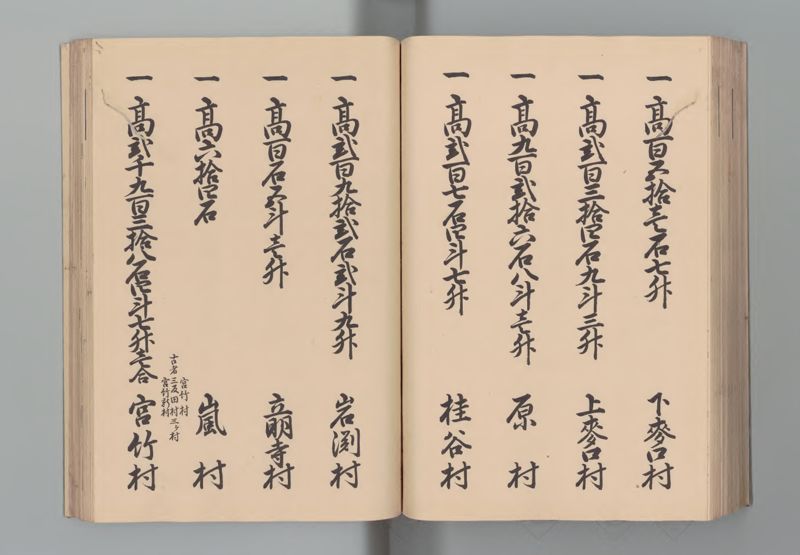 一高百五拾壱石七舛 下麥口村
一高弐百三拾四石九斗三舛 上麥口村
一高九百弐拾六石八斗壱舛 原村
一高弐百七石四斗七舛 桂谷村
一高弐百九拾弐石弐斗九舛 岩渕村
一高百石五斗壱舛 立明寺村
一高六拾四石 嵐村
宮竹村
古者三反田村三ヶ村
宮竹新村
一高弐千九百三拾八石四斗七舛壱合 宮竹村